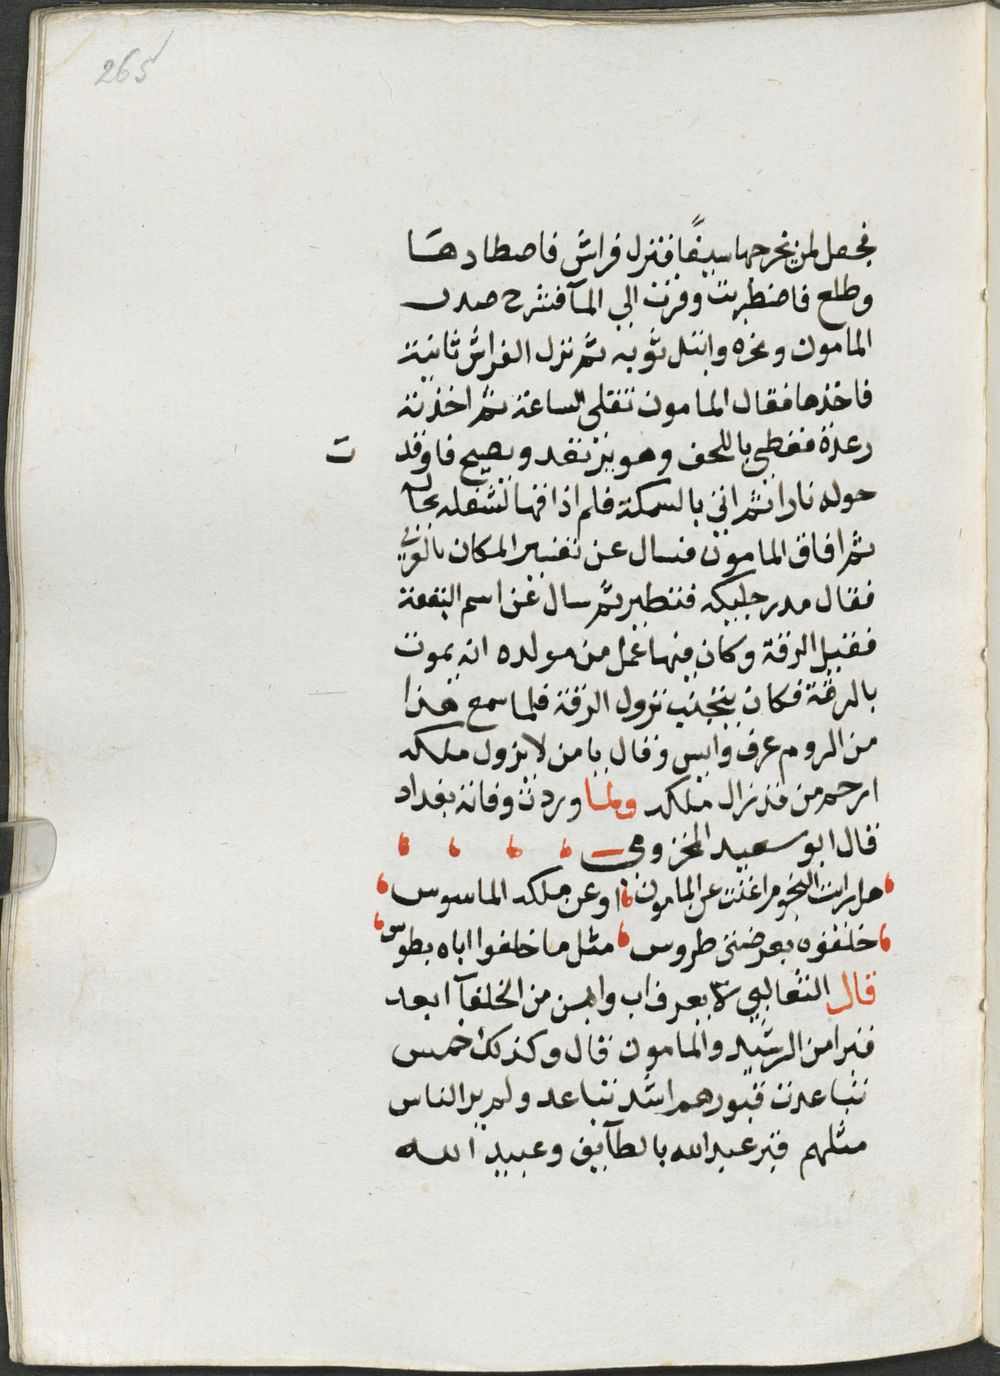 265
فجعل لمن يخرجها سيفاً فنزل فراش فاصطادها
وطلع فاضطربت وفرت الى المآ فنضح صدر
المامون ونحره وابتل ثوبه ثم نزل الفراش ثانية
فاخذها فقال المامون تقلى الساعة ثم اخذته
رعدة فغطي باللحف وهو يرتعد ويصيح فاوقد ت
حوله نارا ثم اتى بالسمكة فلم اذاقها لشغله بحاله
ثم افاق المامون فسال عن تفسير المكان بالعربي
فقال مد رجليك فتطير ثم سال عن اسم البقعة
فقيل الرقة وكان فيها عمل من مولده انه يموت
بالرقة فكان يتجنب نزول الرقة فلما سمع هذا
من الروم عرف وايس وقال يا من لا يزول ملكه
ارحم من قد زال ملكه ولما وردت وفاته بغداد
قال ابو سعيد المخزومى
هل رايت النجوم اغنت عن المامون او عن ملكه الماسوس
خلفوه بعرضتى طرسوس مثل ما خلفوا اباه بطوس
قال الثعالبي لا يعرف اب وابن من الخلفآ ابعد
قبرا من الرشيد والمامون قال وكذلك خمس
تباعدت قبورهم اشد تباعد ولم ير الناس
مثلهم قبر عبد الله بالطآيف وعبيد الله